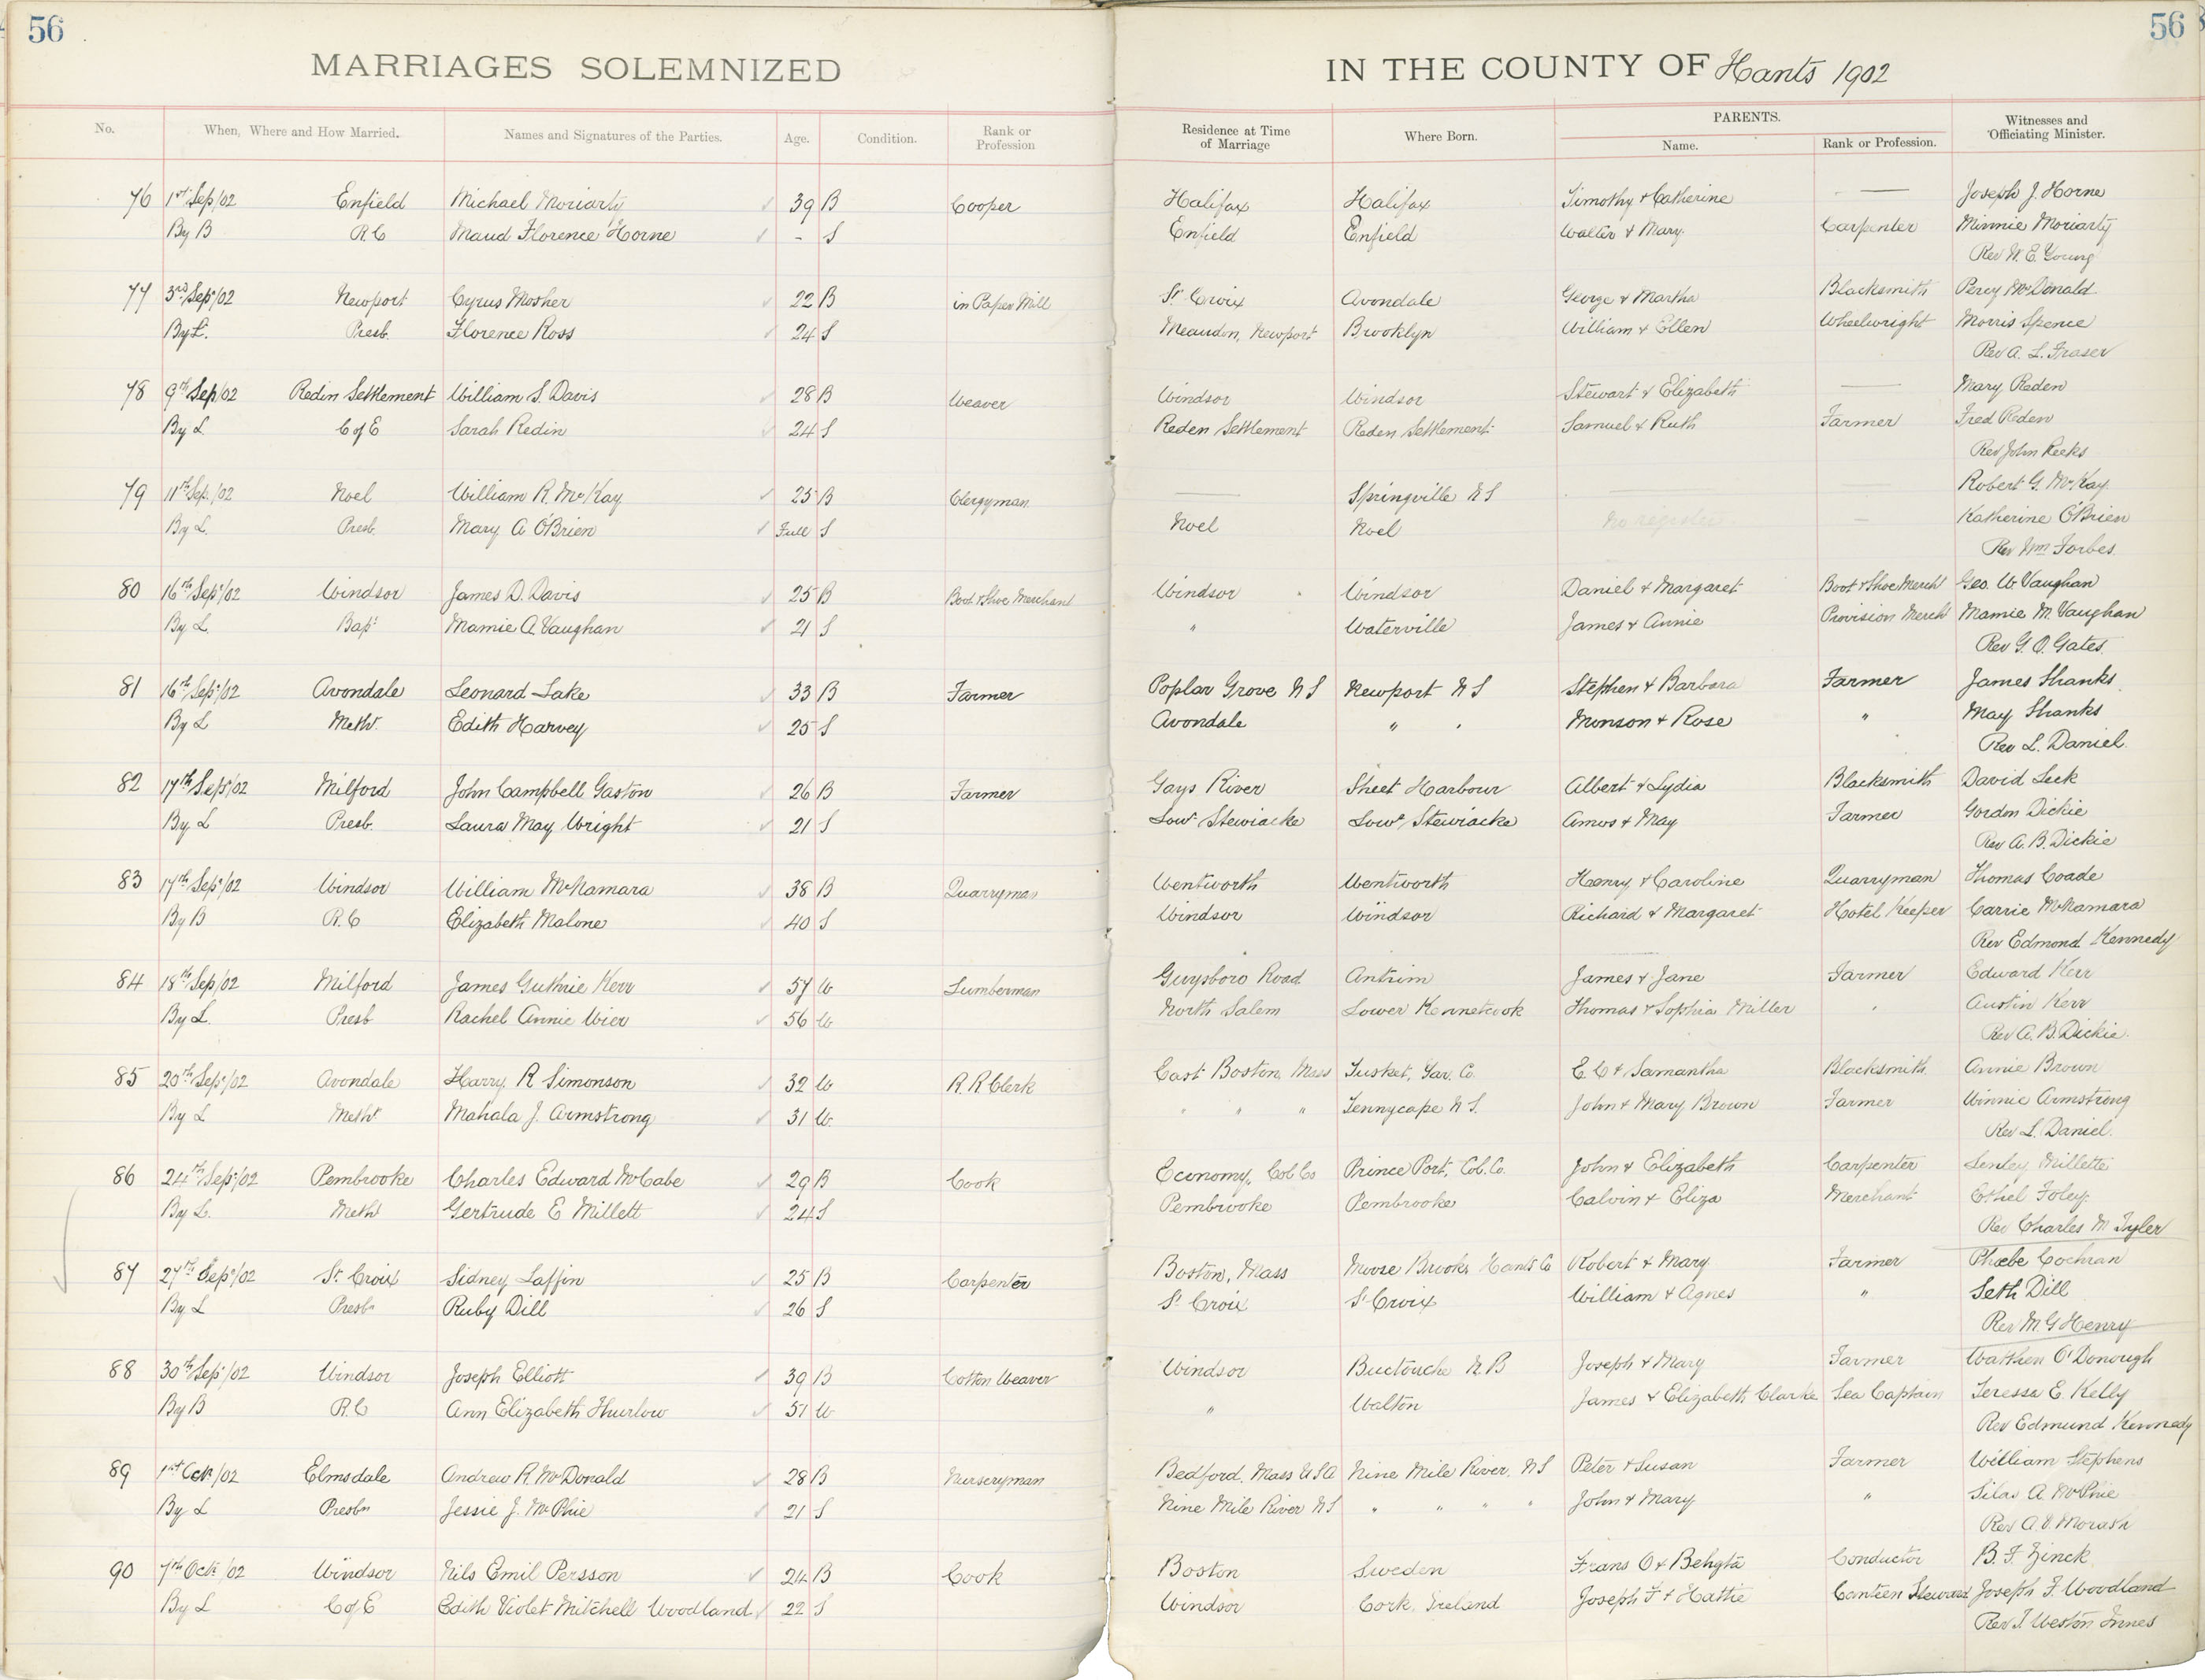 56
56
MARRIAGES SOLEMNIZED IN THE COUNTY OF Hants 1902
No. When, Where and How Married. Names and Signatures of the Parties. Age. Condition. Rank or Profession Residence at Time of Marriage Where Born. PARENTS. Name. Rank or Profession. Witnesses and Officiating Minister.
76 1st Sep/02 Enfield Michael Moriarty 39 B Cooper Halifax Halifax Timothy & Catherine — Joseph J. Horne
By B R.C Maud Florence Horne - S Enfield Enfield Walter & Mary Carpenter Minnie Moriarty
Rev W. E. Young
77 3rd Sep/02 Newport Cyrus Mosher 22 B in Paper Mill St Croix Avondale George & Martha Blacksmith Percy McDonald
By L. Presb. Florence Ross 24 S Newport Brooklyn William & Ellen Wheelwright Morris Spence
Rev A. L. Fraser
78 9th Sep/02 Redin Settlement William S. Davis 28 B Weaver Windsor Windsor Stewart & Elizabeth — Mary Reden
By L C of E Sarah Redin 24 S Reden Settlement Reden Settlement Samuel & Ruth Farmer Fred Reden
Rev John Reeks
79 11th Sep./02 Noel William R. McKay 25 B Clergyman — Springville N S — — Robert G. McKay
By L. Presb. Mary A O'Brien Full S Noel Noel No register — Katherine O'Brien
Rev Wm Forbes.
80 16th Sep/02 Windsor James D. Davis 25 B Boot & Shoe Merchant Windsor Windsor Daniel & Margaret Boot & Shoe Mercht Geo. W. Vaughan
By L. Bapt Mamie A. Vaughan 21 S " Waterville James & Annie Provision Mercht Mamie M. Vaughan
Rev G. O. Gates.
81 16th Sep/02 Avondale Leonard Lake 33 B Farmer Poplar Grove N S Newport N S Stephen & Barbara Farmer James Shanks
By L Meth. Edith Harvey 25 S Avondale " " Monson & Rose " May Shanks
Rev L. Daniel.
82 17th Sep/02 Milford John Campbell Gaston 26 B Farmer Gays River Sheet Harbour Albert & Lydia Blacksmith David Leek
By L Presb. Laura May Wright 21 S Lowr Stewiacke Lowr Stewiacke Amos & May Farmer Gordon Dickie
Rev A. B. Dickie
83 17th Sep/02 Windsor William McNamara 38 B Quarryman Wentworth Wentworth Henry & Caroline Quarryman Thomas Coade
By B R.C Elizabeth Malone 40 S Windsor Windsor Richard & Margaret Hotel Keeper Carrie McNamara
Rev Edmond Kennedy
84 18th Sep/02 Milford James Guthrie Kerr 57 W Lumberman Guysboro Road Antrim James & Jane Farmer Edward Kerr
By L. Presb Rachel Annie Wier 56 W North Salem Lower Kennetcook Thomas & Sophia Miller " Austin Kerr
Rev A. B. Dickie.
85 20th Sep/02 Avondale Harry R Simonson 32 W R. R Clerk East Boston, Mass Tusket, Yar. Co. E. C & Samantha Blacksmith Annie Brown
By L Metht Mahala J. Armstrong 31 W. " " " Tennycape N S. John & Mary Brown Farmer Winnie Armstrong
Rev L. Daniel.
86 24th Sep/02 Pembrooke Charles Edward McCabe 29 B Cook Economy, Col Co Prince Port, Col. Co. John & Elizabeth Carpenter Millette
By L. Metht Gertrude E Millett 24 S Pembrooke Pembrooke Calvin & Eliza Merchant Ethel Foley
Rev Charles M Tyler
87 27th Sep/02 St Croix Sidney Laffin 25 B Carpenter Boston, Mass Moose Brook, Hants Co Robert & Mary Farmer Phoebe Cochran
By L Presbn Ruby Dill 26 S St Croix St Croix William & Agnes " Seth Dill
Rev M. G Henry
88 30th Sep/02 Windsor Joseph Elliott 39 B Cotton Weaver Windsor Buctouche N. B Joseph & Mary Farmer O'Donough
By B R.C Ann Elizabeth Thurlow 51 W " Walton James & Elizabeth Clarke Sea Captain Teressa E. Kelly
Rev Edmund Kennedy
89 1st Oct/02 Elmsdale Andrew R. McDonald 28 B Nurseryman Bedford, Mass U S A Nine Mile River, N S Peter & Susan Farmer William Stephens
By L Presbn Jessie J. McPhie 21 S Nine Mile River N S " " " " John & Mary " Silas A. McPhie
Rev A. V. Morash
90 7th Oct/02 Windsor Nils Emil Persson 24 B Cook Boston Sweden Frans O & Behgta Conductor B. F. Zinck
By L C of E Edith Violet Mitchell Woodland 22 S Windsor Cork, Ireland Joseph F & Hattie Canteen Steward Joseph F. Woodland
Rev T Weston Innes